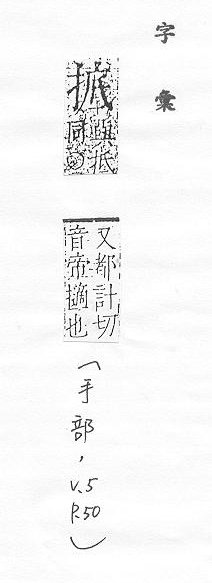 字彙
與抵
同
又都計切
音帝擿也
(手部, V.5
P.50)